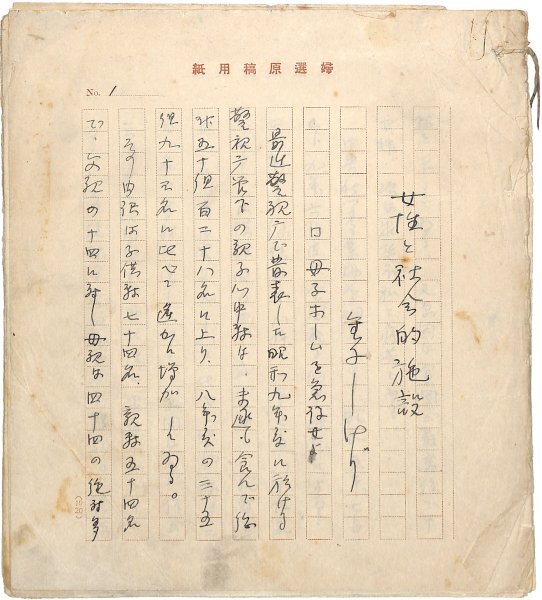 婦選原稿用紙
No. 1
女性と社会的施設
金子しげり
一、母子ホームを急設せよ
最近警視庁で発表した昭和九年度に於ける
警視庁管下の親子心中数は、未遂も含んで総
計五十組百二十八名に上り、八年度の三十五
組九十三名に比べて遙かに増加してゐる。
その内訳は子供数七十四名、親数五十四名
で、父親の十四に対し母親は四十の絶対多
(10.20)